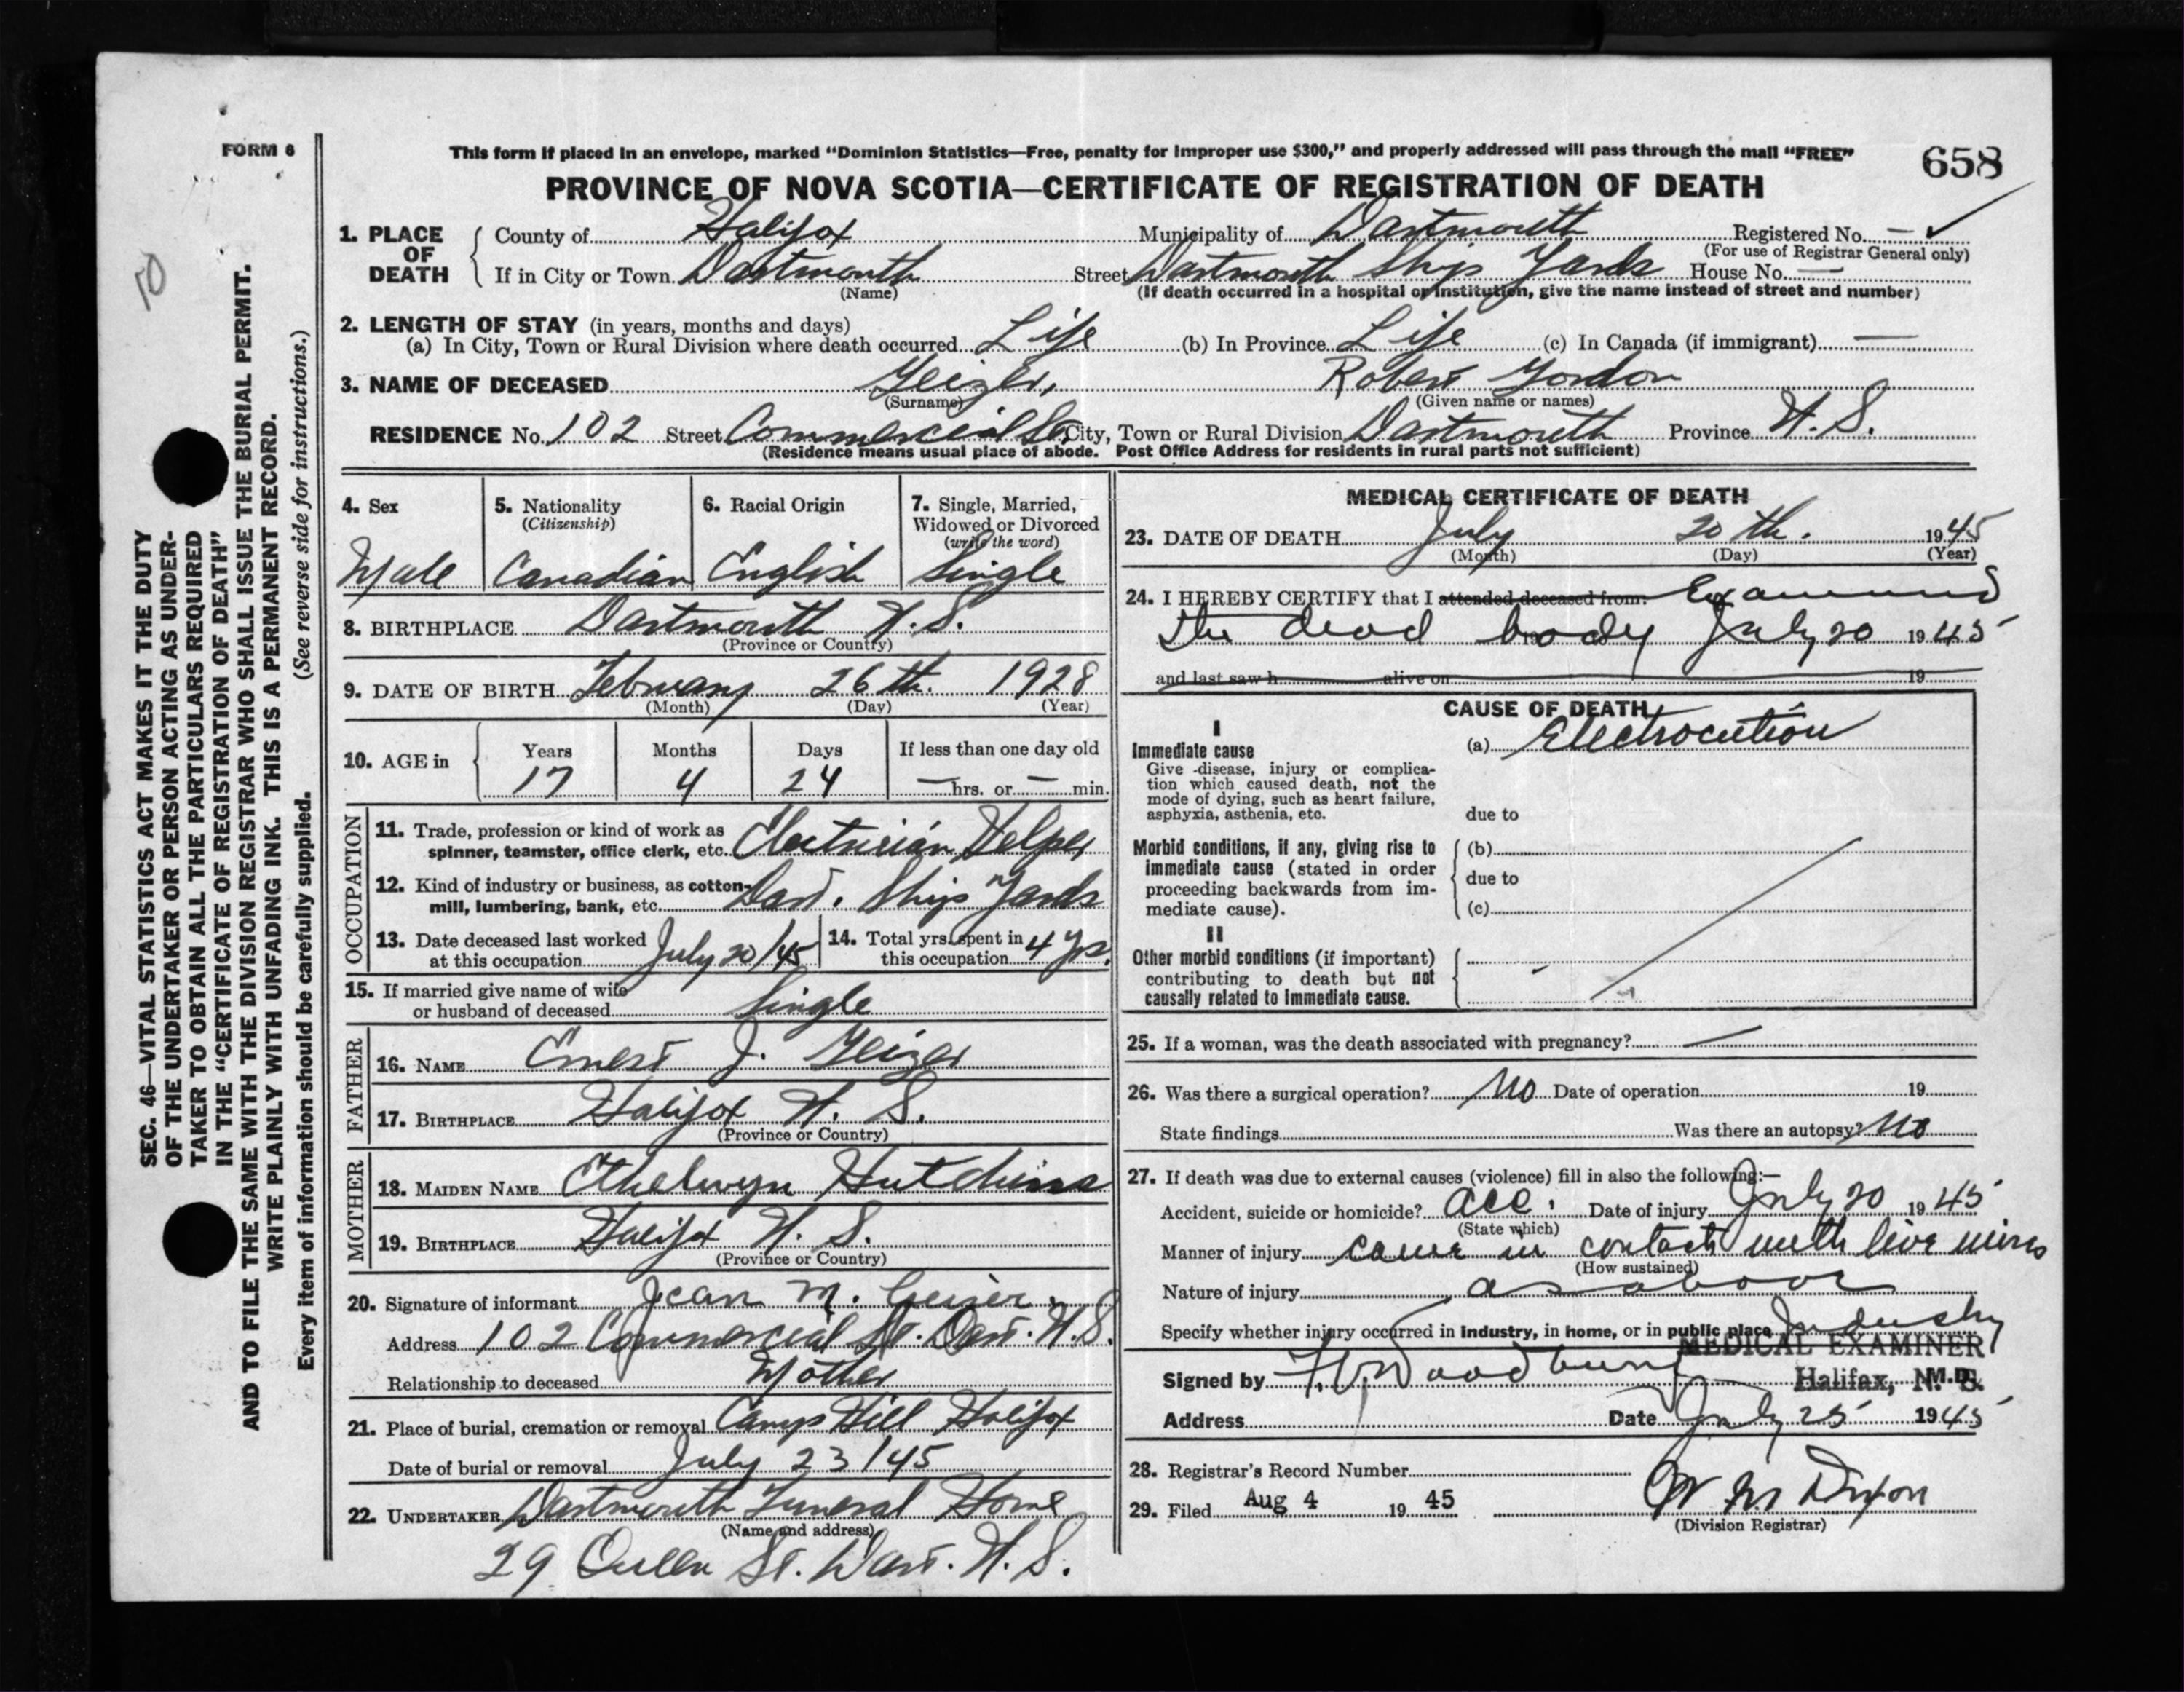 FORM 6
This form if placed in an envelope, marked “Dominion Statistics—Free, penalty for improper use $300,” and properly addressed will pass through the mail “FREE”
658
PROVINCE OF NOVA SCOTIA—CERTIFICATE OF REGISTRATION OF DEATH
1. PLACE OF DEATH County of Halifax Municipality of Dartmouth Registered No. — ✓
(For use of Registrar General only)
If in City or Town Dartmouth Street Dartmouth Ship Yards House No. —
(Name) (If death occurred in a hospital or institution, give the name instead of street and number)
2. LENGTH OF STAY (in years, months and days)
(a) In City, Town or Rural Division where death occurred Life (b) In Province Life (c) In Canada (if immigrant) —
3. NAME OF DECEASED Geizer, Robert Gordon
(Surname) (Given name or names)
RESIDENCE No. 102 Street Commercial St. City, Town or Rural Division Dartmouth Province N. S.
(Residence means usual place of abode. Post Office Address for residents in rural parts not sufficient)
4. Sex
Male
5. Nationality
(Citizenship)
Canadian
6. Racial Origin
English
7. Single, Married,
Widowed or Divorced
(write the word)
Single
8. BIRTHPLACE Dartmouth N.S.
(Province or Country)
9. DATE OF BIRTH February 26th. 1928
(Month) (Day) (Year)
10. AGE in Years Months Days If less than one day old
17 4 24 — hrs. or — min.
OCCUPATION
11. Trade, profession or kind of work as
spinner, teamster, office clerk, etc. Electrician Helper
12. Kind of industry or business, as cotton-
mill, lumbering, bank, etc. Dart. Ship Yards
13. Date deceased last worked
at this occupation July 20/45
14. Total yrs. spent in
this occupation 4 yrs.
15. If married give name of wife
or husband of deceased Single
FATHER
16. NAME Ernest J. Geizer
17. BIRTHPLACE Halifax N. S.
(Province or Country)
MOTHER
18. MAIDEN NAME Ethelwyn Hutchins
19. BIRTHPLACE Halifax N. S.
(Province or Country)
20. Signature of informant Jean M. Geizer.
Address 102 Commercial St. Dart. N.S.
Relationship to deceased Mother
21. Place of burial, cremation or removal Camp Hill Halifax
Date of burial or removal July 23/45
22. UNDERTAKER Dartmouth Funeral Home
(Name and address)
29 Queen St. Dart. N. S.
MEDICAL CERTIFICATE OF DEATH
23. DATE OF DEATH July 20th. 1945
(Month) (Day) (Year)
24. I HEREBY CERTIFY that I attended deceased from: Examined
the dead body July 20 1945
and last saw h alive on 19
CAUSE OF DEATH
I
Immediate cause (a) Electrocution
Give disease, injury or complica-
tion which caused death, not the
mode of dying, such as heart failure,
asphyxia, asthenia, etc. due to
Morbid conditions, if any, giving rise to (b)
immediate cause (stated in order due to
proceeding backwards from im-
mediate cause). (c)
II
Other morbid conditions (if important)
contributing to death but not
causally related to immediate cause.
25. If a woman, was the death associated with pregnancy? —
26. Was there a surgical operation? No Date of operation 19
State findings Was there an autopsy? No
27. If death was due to external causes (violence) fill in also the following:—
Accident, suicide or homicide? acc. Date of injury July 20 1945
(State which)
Manner of injury came in contact with live wires
(How sustained)
Nature of injury as above
Specify whether injury occurred in industry, in home, or in public place Industry
MEDICAL EXAMINER
Signed by Woodbury M.D.
Halifax, N. S.
Address Date July 25 1945
28. Registrar's Record Number
29. Filed Aug 4 1945 Dixon
(Division Registrar)
SEC. 46—VITAL STATISTICS ACT MAKES IT THE DUTY
OF THE UNDERTAKER OR PERSON ACTING AS UNDER-
TAKER TO OBTAIN ALL THE PARTICULARS REQUIRED
IN THE “CERTIFICATE OF REGISTRATION OF DEATH”
AND TO FILE THE SAME WITH THE DIVISION REGISTRAR WHO SHALL ISSUE THE BURIAL PERMIT.
WRITE PLAINLY WITH UNFADING INK. THIS IS A PERMANENT RECORD.
Every item of information should be carefully supplied. (See reverse side for instructions.)